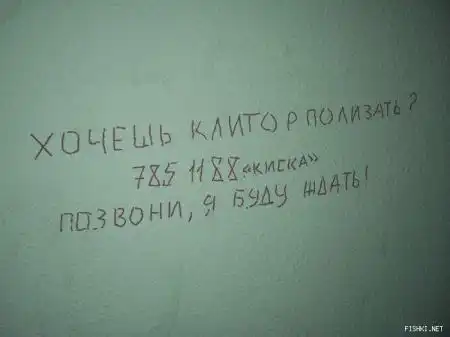 ХОЧЕШЬ КЛИТОР ПОЛИЗАТЬ?
785 1188 «КИСКА»
ПОЗВОНИ, Я БУДУ ЖДАТЬ!
FISHKI.NET